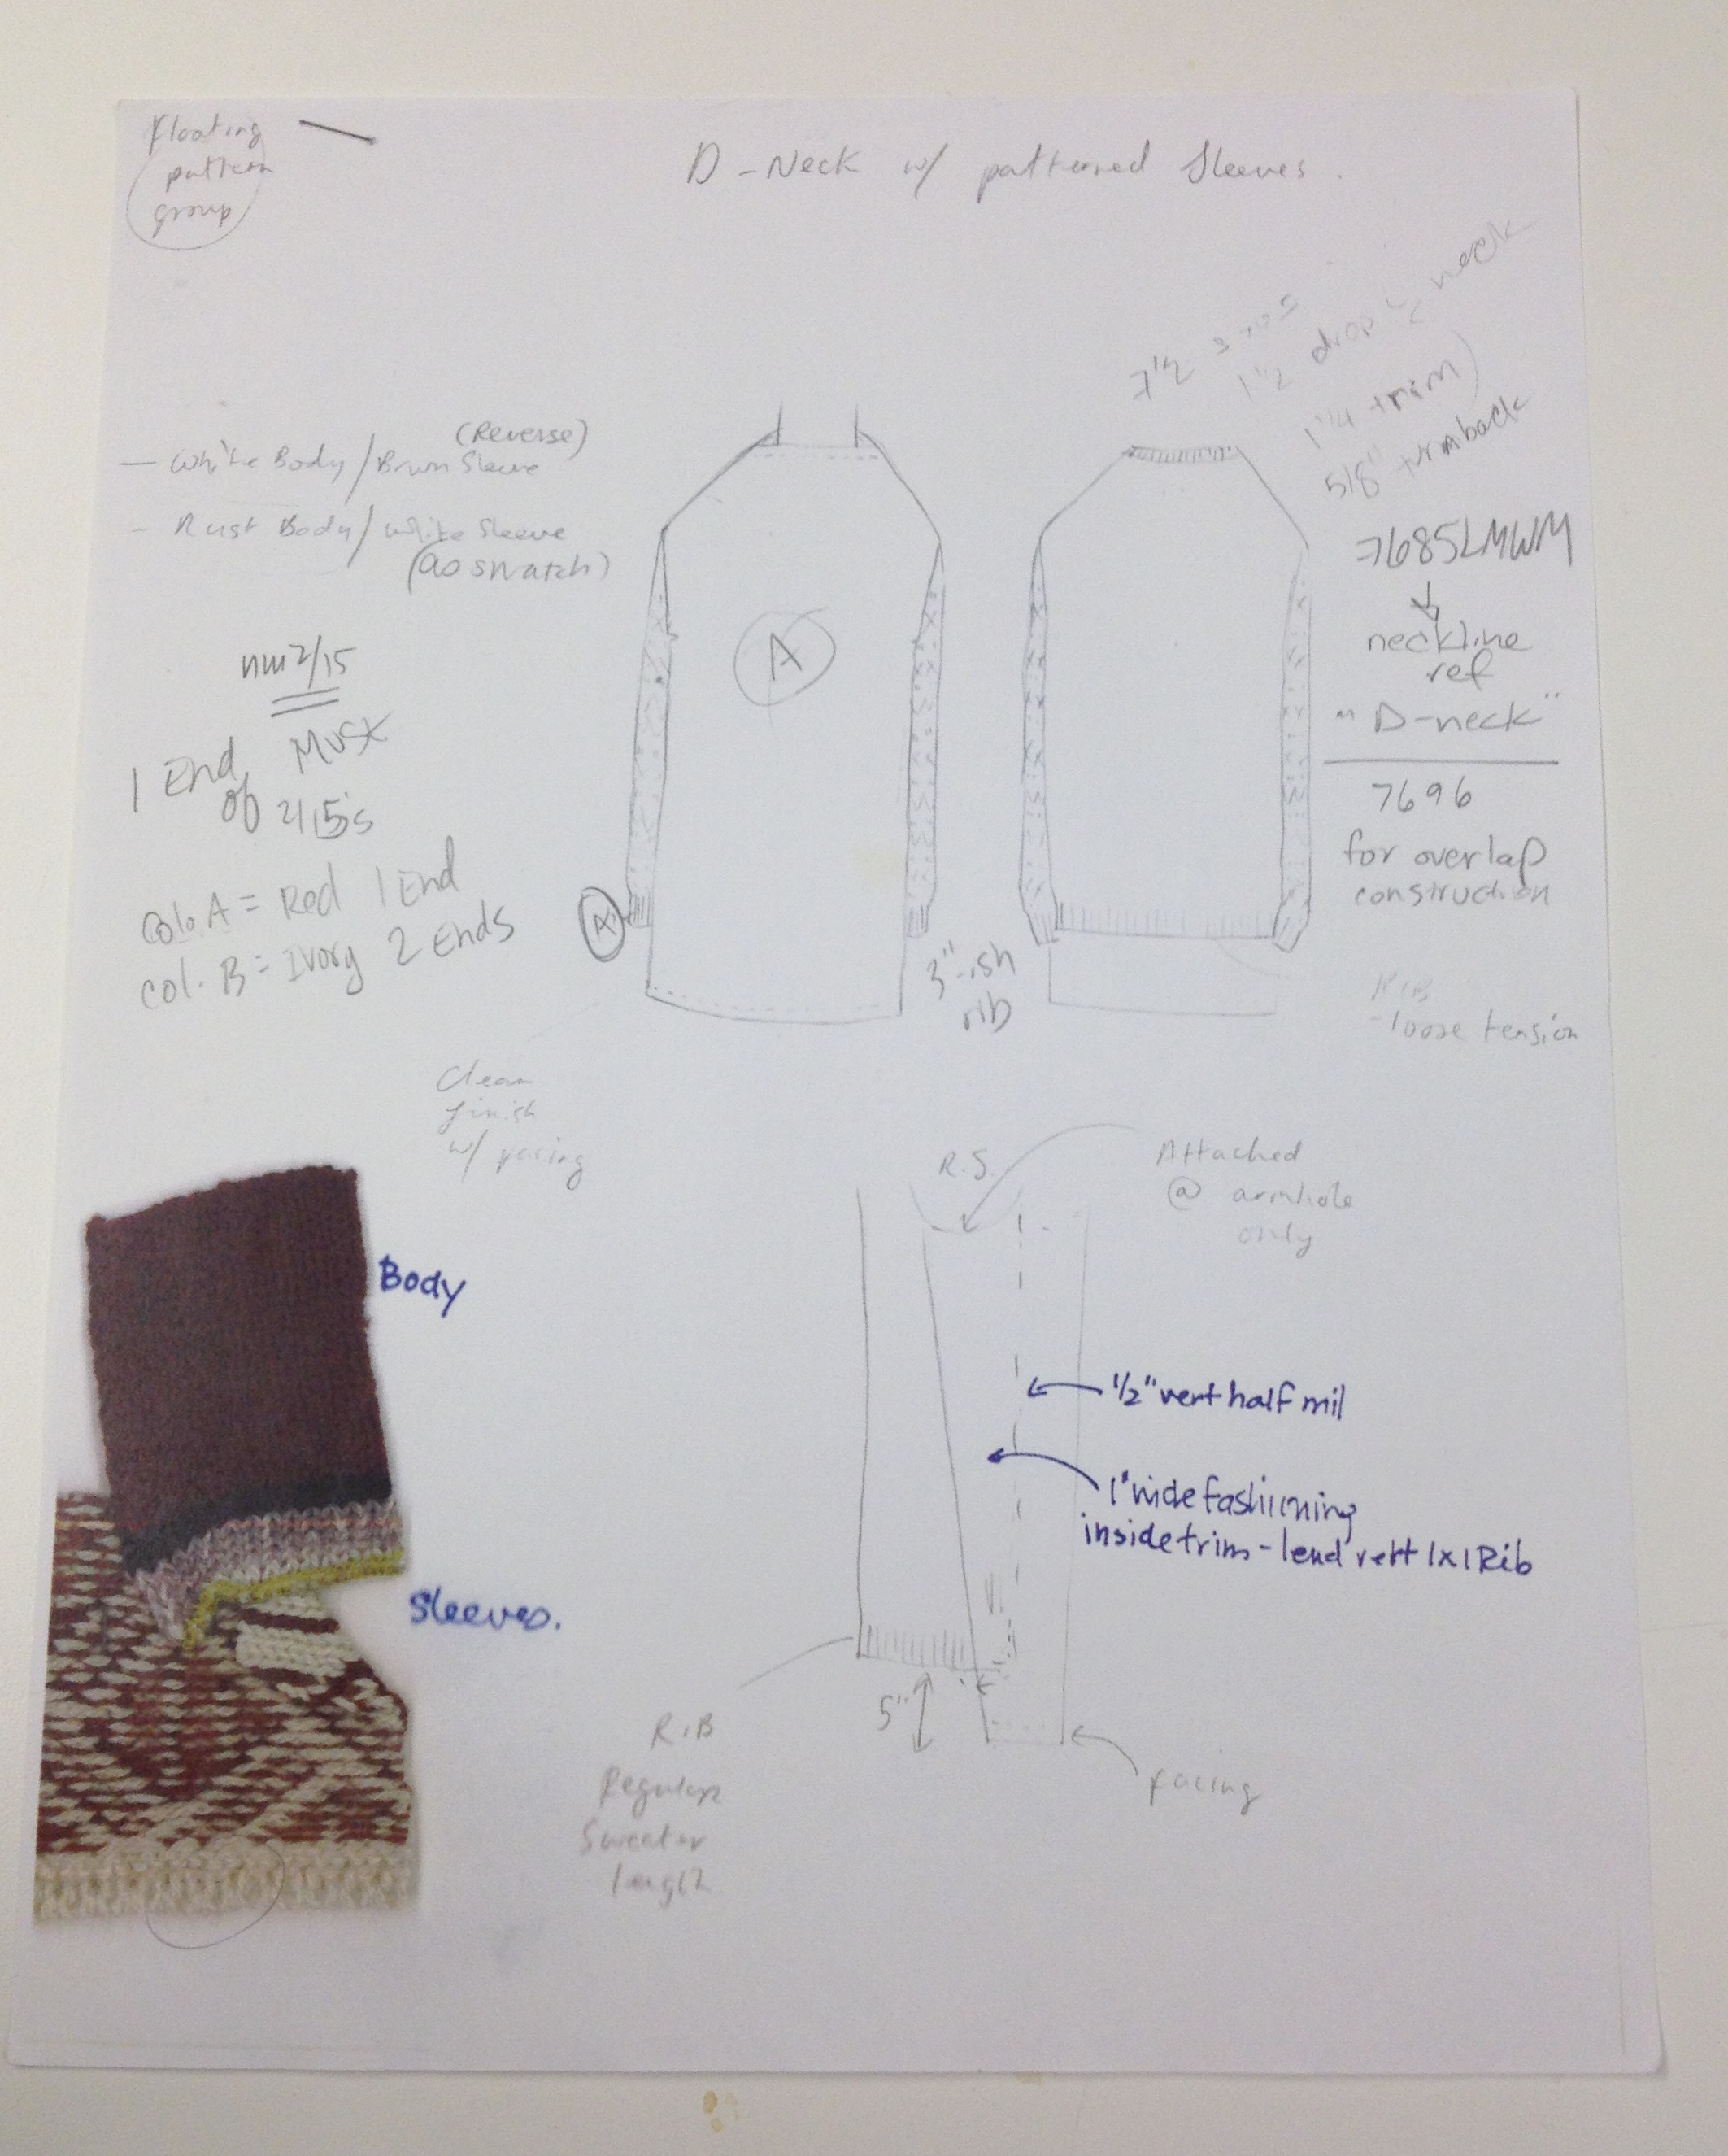 Floating
pattern
group
D-Neck w/ patterned Sleeves.
7 1/2 s to s
1 1/2 drop neck
1 1/4 trim)
5/8" turnback
(Reverse)
— White Body/Brwn Sleeve
- Rust Body/white Sleeve
(as swatch)
A
7685LMWM
neckline
ref
"D-neck"
7696
for overlap
construction
nm 2/15
1 End
of
2/15's
Col. A = Red 1 End
col. B = Ivory 2 Ends
A
3"-ish
rib
RIB
-loose tension
Clean
finish
w/ facing
R.S.
Attached
@ armhole
only
Body
1/2" vert half mil
1" wide fashioning
inside trim - vert 1x1 Rib
Sleeves.
5"
RIB
Regular
Sweater
length
facing